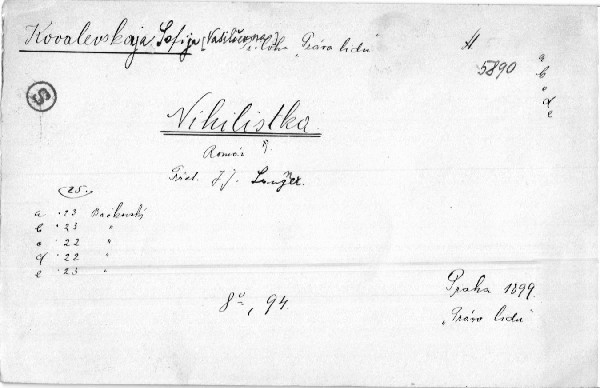 Kovalevskaja, Sofija [Vasiljevna] Příloha „Práva lidu“
H
5890
a
b
c
d
e
S
Nihilistka
Román
Přel. J. J.
25.
a · 23
b · 23 "
c · 22 "
d · 22 "
e · 23 "
8°, 94
Praha 1899.
„Právo lidu“